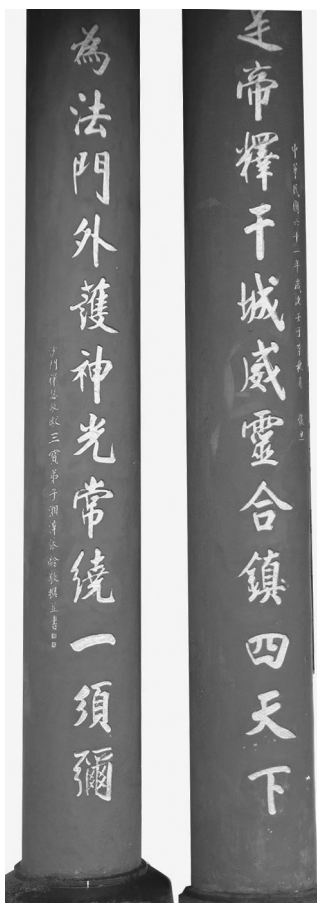 是帝釋干城威靈合鎮四天下
中華民國六十一年歲次壬子
為法門外護神光常繞一須彌
三寶弟子湘潭張齡敬撰并書